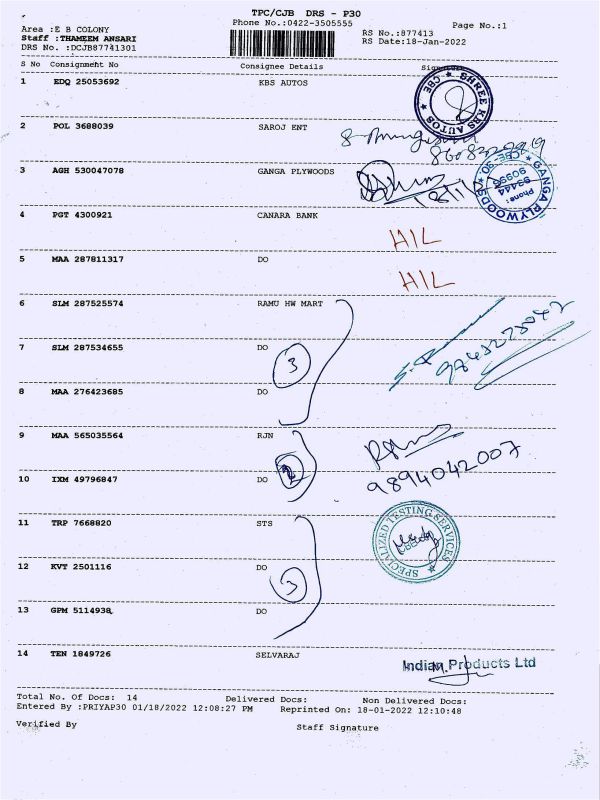 TPC/CJB DRS - P30
Phone No.:0422-3505555
Page No.:1
Area :E B COLONY
Staff :THAMEEM ANSARI
DRS No. :DCJB87741301
RS No.:877413
RS Date:18-Jan-2022
S No Consignment No Consignee Details Signature
1 EDQ 25053692 KBS AUTOS
SHREE KBS AUTOS ★ CBE ★
2 POL 3688039 SAROJ ENT
3 AGH 530047078 GANGA PLYWOODS
GANGA PLYWOODS CBE-30
Phone:
93444
90996
4 PGT 4300921 CANARA BANK
HIL
5 MAA 287811317 DO
HIL
6 SLM 287525574 RAMU HW MART
7 SLM 287534655 DO
3
8 MAA 276423685 DO
9 MAA 565035564 RJN
10 IXM 49796847 DO
2
9894042007
11 TRP 7668820 STS
SPECIALIZED TESTING SERVICES ★
12 KVT 2501116 DO
3
13 GPM 5114938 DO
14 TEN 1849726 SELVARAJ
Indian Products Ltd
Total No. Of Docs: 14 Delivered Docs: Non Delivered Docs:
Entered By :PRIYAP30 01/18/2022 12:08:27 PM Reprinted On: 18-01-2022 12:10:48
Verified By Staff Signature